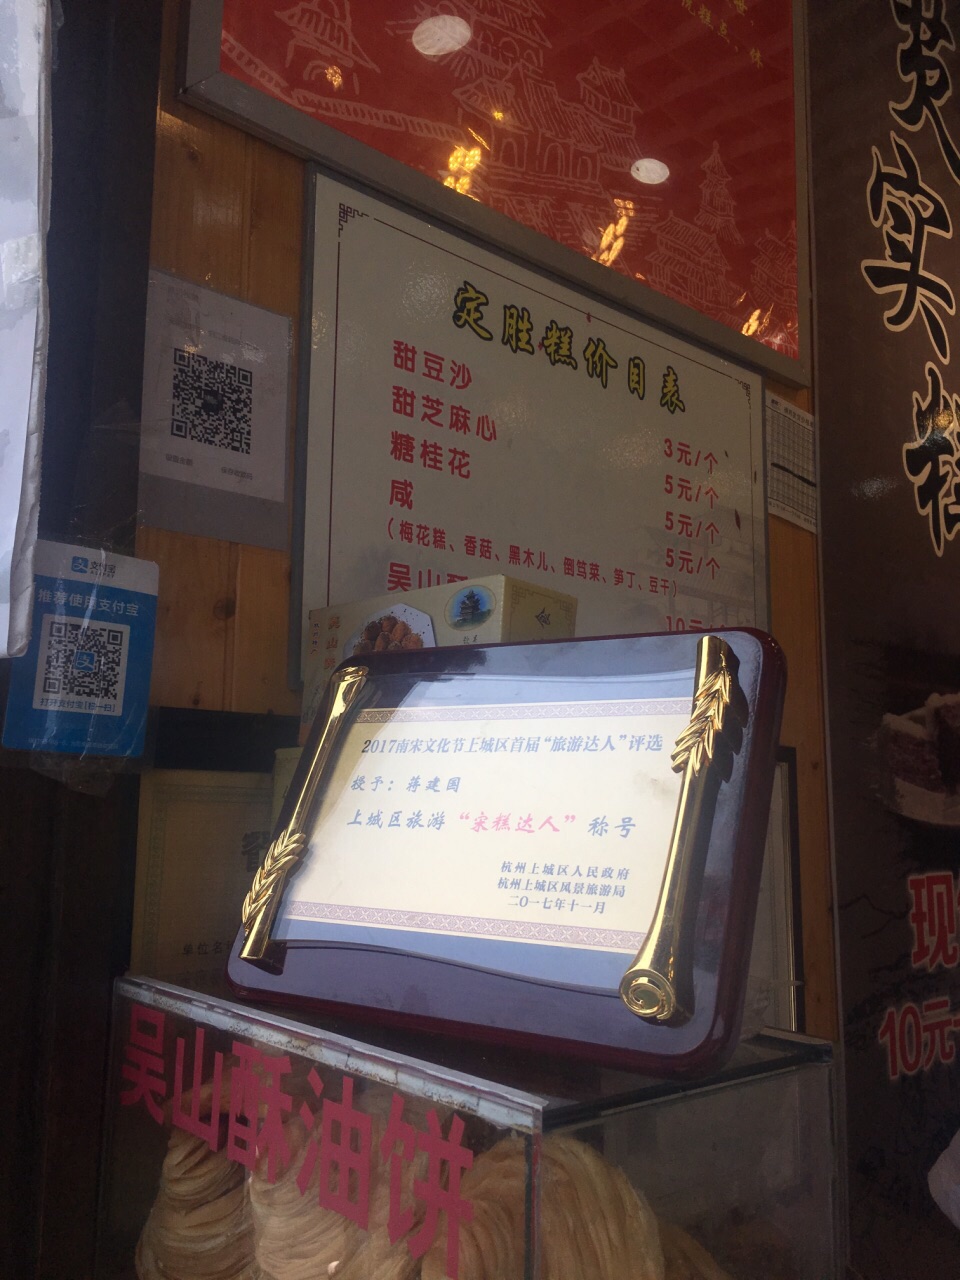 定胜糕价目表
甜豆沙 3元/个
甜芝麻心 5元/个
糖桂花 5元/个
咸 5元/个
（梅花糕、香菇、黑木儿、倒笃菜、笋丁、豆干）
吴山酥
推荐使用支付宝
打开支付宝[扫一扫]
2017南宋文化节上城区首届“旅游达人”评选
授予：蒋建国
上城区旅游“宋糕达人”称号
杭州上城区人民政府
杭州上城区风景旅游局
二〇一七年十一月
单位名
吴山酥油饼
实
现
10元